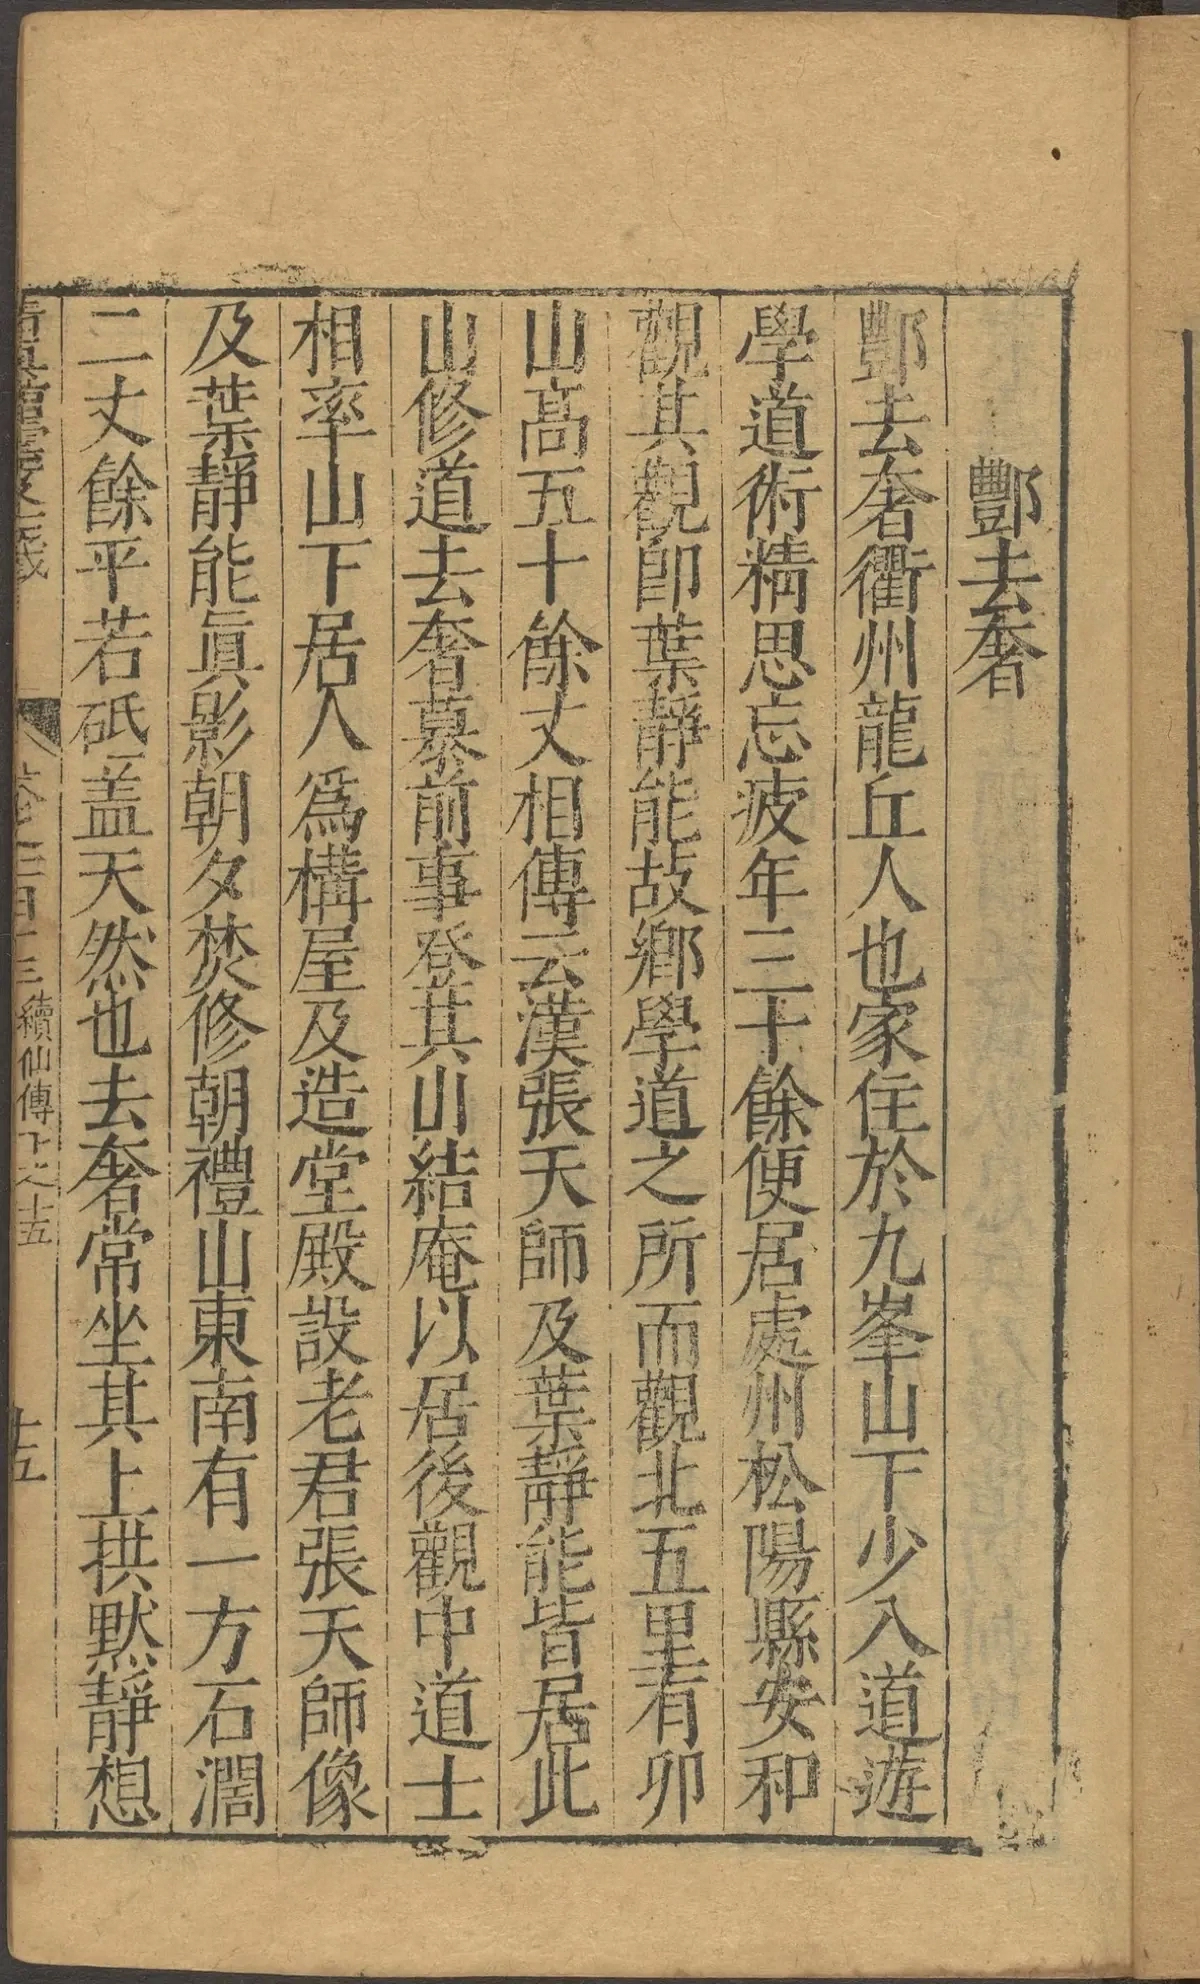 酆去奢
酆去奢衢州龍丘人也家住於九峯山下少入道遊
學道術精思忘疲年三十餘便居處州松陽縣安和
觀其觀卽葉靜能故鄉學道之所而觀北五里有卯
山高五十餘丈相傳云漢張天師及葉靜能皆居此
山修道去奢慕前事登其山結庵以居後觀中道士
相率山下居人爲構屋及造堂殿設老君張天師像
及葉靜能眞影朝夕焚修朝禮山東南有一方石濶
二丈餘平若砥盖天然也去奢常坐其上拱默靜想
續仙傳下之十五
十五